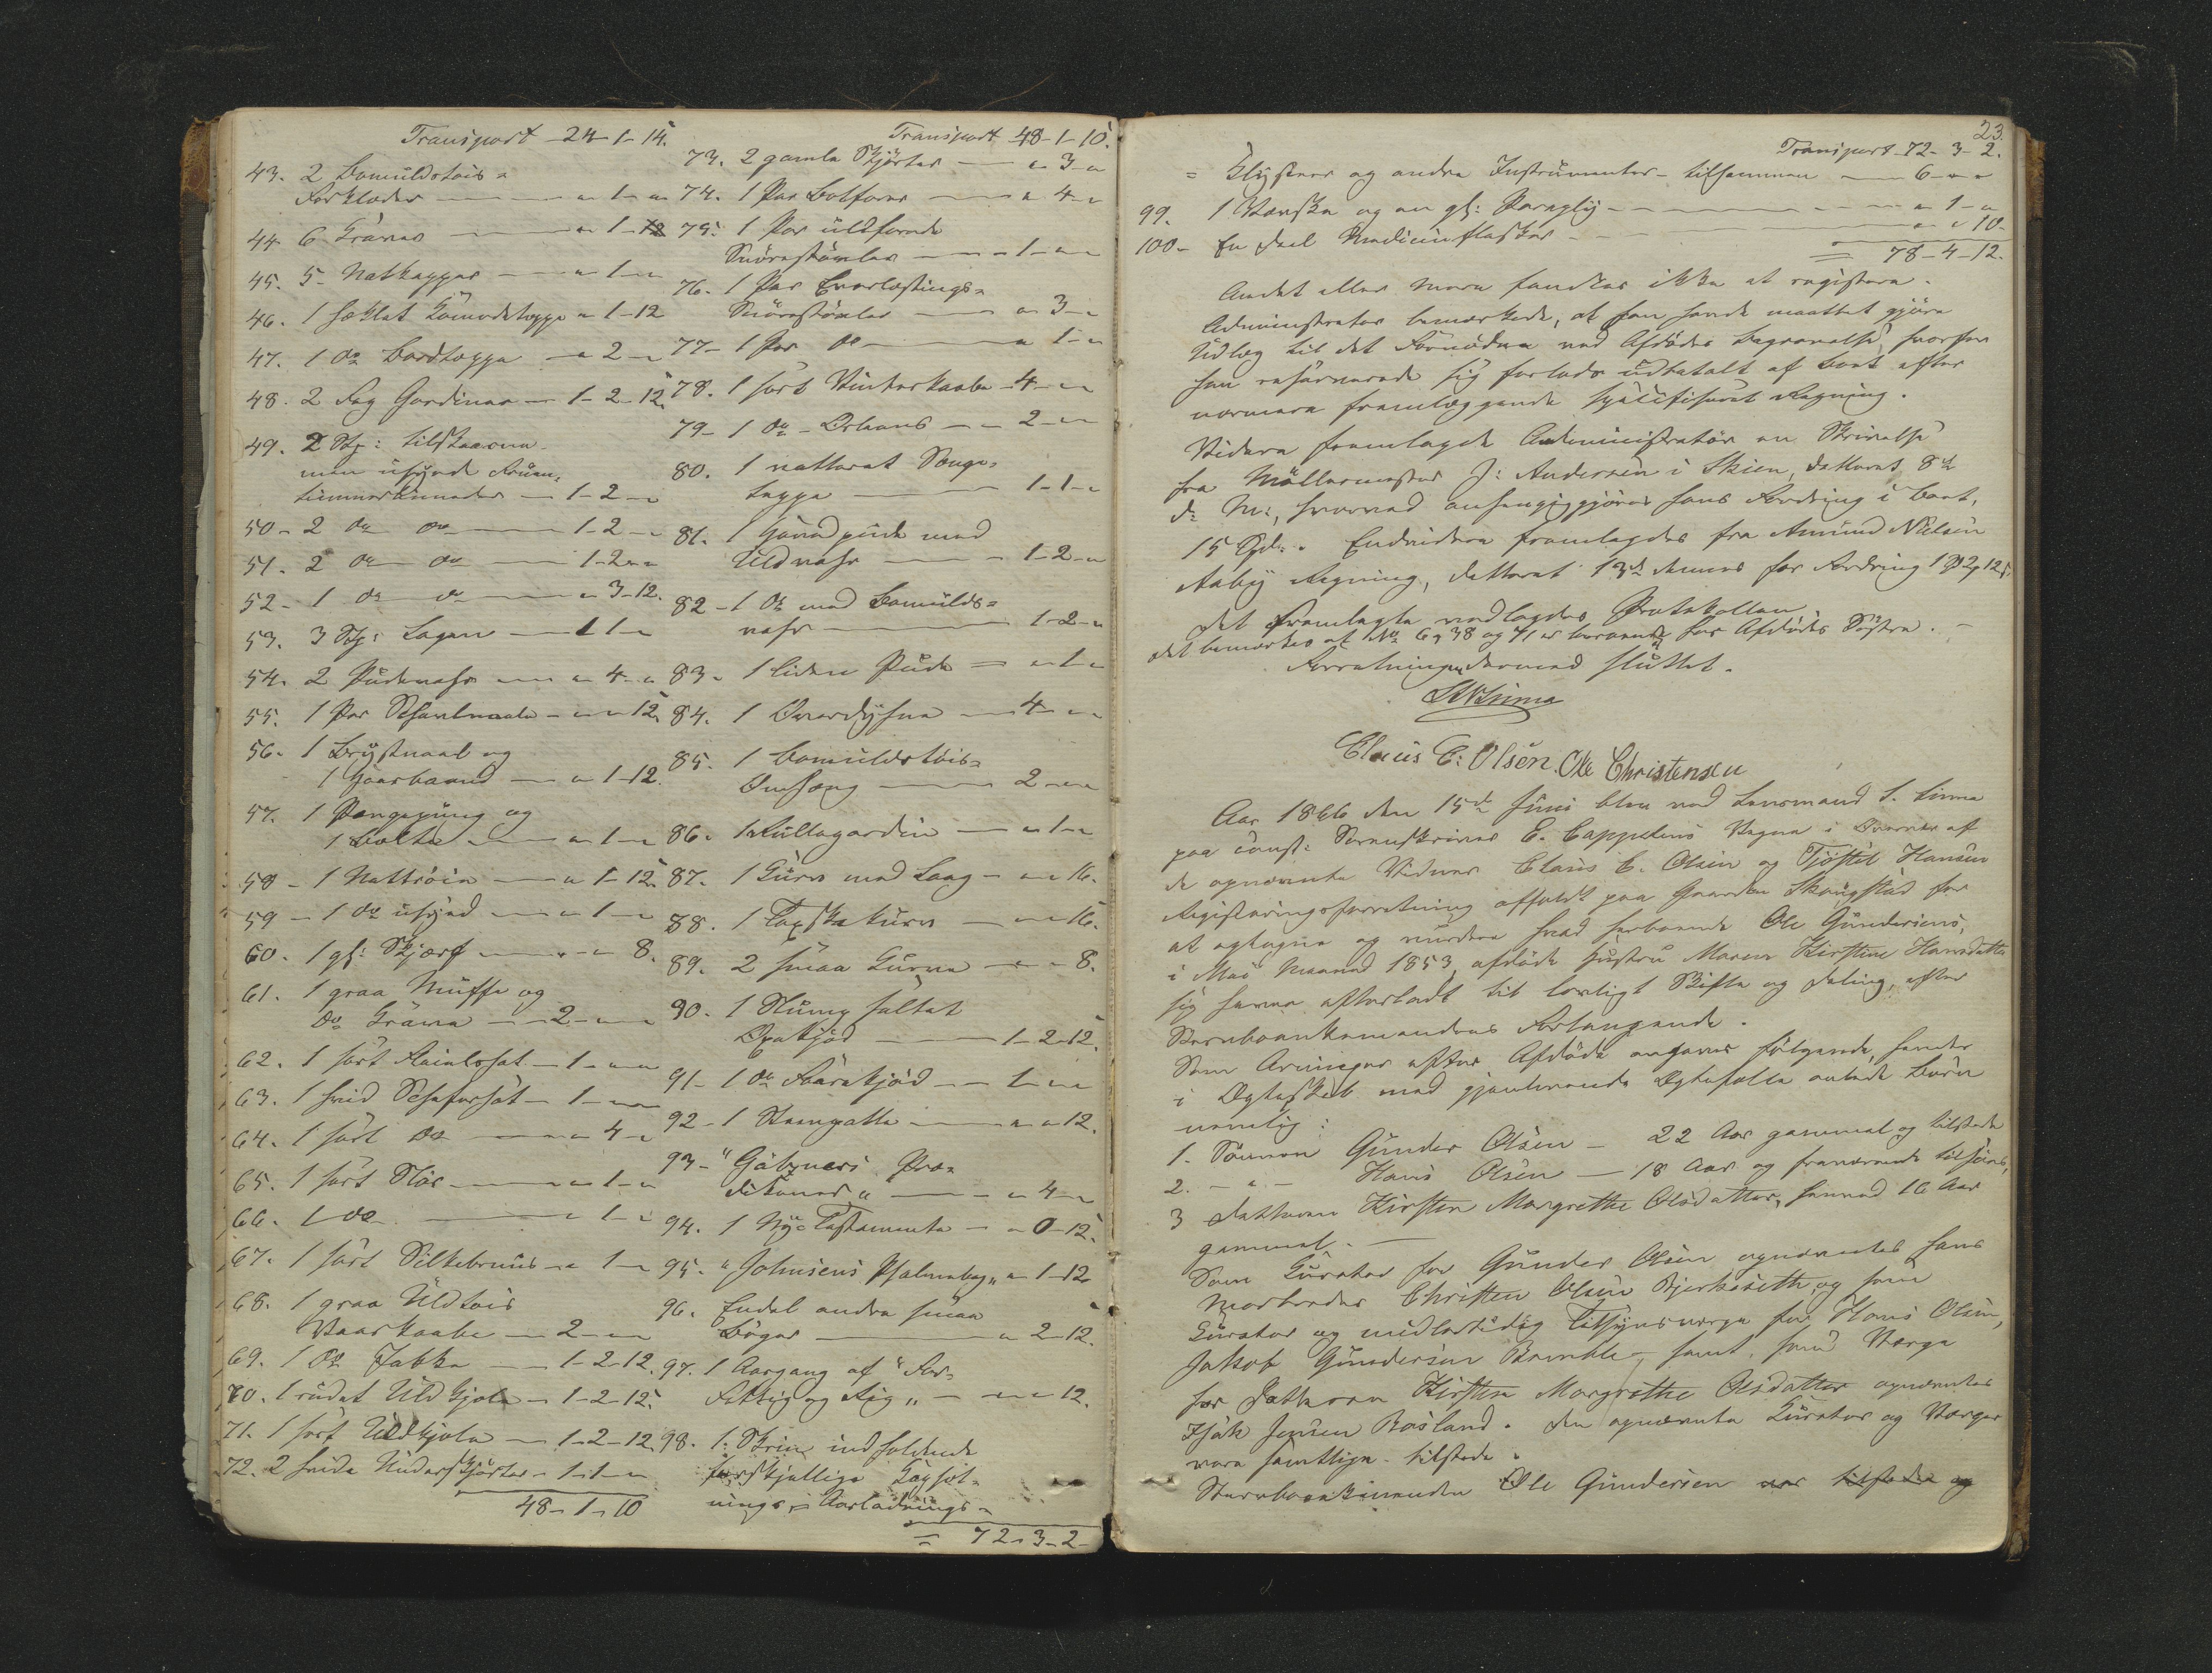 Transport 24-1-14.
43. 2 Bomuldstøis-
Forklæder — " 1 - "
44. 6 Kraver — " 1 - 12
45. 5 Natkapper — " 1 - "
46. 1 hæklet Komodeteppe " 1-12
47. 1 do Bordteppe — " 2 - "
48. 2 Fag Gardiner — 1-2-12.
49. 2 Stk: tilskaarne
men usyede Fruen-
timmerlinneder — 1-2-"
50 - 2 do do — 1-2-"
51. 2 do do — 1-2-"
52 - 1 do do — " 3-12.
53. 3 Stk: Lagen — 1 1 - "
54. 2 Pudevahr — " 4 - "
55. 1 Par — " - " 12.
56. 1 Brystnaal og
1 Haarbaand — " 1-12.
57. 1 Pengepung og
1 Belte — " 1 - "
58 - 1 Nattrøie — " 1-12.
59 - 1 do usyed — " 1 - "
60. 1 gl: Skjærf — " - " 8.
61. 1 graa Muffe og
do Krave — 2 - " "
62. 1 sort — 1 - " "
63. 1 hvid — 1 - " "
64. 1 sort do — " 4 - "
65. 1 sort Slør — " 1 - "
66. 1 do — " 1 - "
67. 1 sort — " 1 - "
68. 1 graa Uldtøis
Vaarkaabe — 2 - " "
69. 1 do Jakke — 1-2-12.
70. 1 rudet Uldkjole — 1-2-12.
71. 1 sort Uldkjole — 1-2-12.
72. 2 hvide Underskjørter - 1-1-"
48-1-10
Transport 48-1-10.
73. 2 gamle Skjørter — " 3 - "
74. 1 Par Botforer — " 4 - "
75. 1 Par uldforede
Snørestøvler — 1 - " "
76. 1 Par Everlæstings-
Snørestøvler — " 3 - "
77 - 1 Par do — " 1 - "
78. 1 sort Vinterkaabe - 4 - " "
79 - 1 do - Orleans — 2 - " "
80. 1 vatteret Senge-
teppe — 1-1-"
81. 1 Hovedpude med
Uldvahr — 1-2-"
82 - 1 do med Bomulds-
vahr — 1-2-"
83 - 1 liden Pude — " 1 - "
84. 1 Overdyhne — 4 - " "
85. 1 Bomuldstøis-
Omhæng — 2 - " "
86. 1 Rullegardin — " 1 - "
87. 1 Kurv med Laag — " " 16.
88. 1 — " " 16.
89. 2 smaa Kurve — " - 8.
90. 1 Slump saltet
Oxekjød — 1-2-12.
91 - 1 do Faarekjød — 1 - " "
92 - 1 — " " 12.
93 - "Götzneri Præ-
dikener" — " 4 - "
94. 1 Nye Testamente — " 0-12.
95. "Johnsens Psalmebog" " 1-12.
96. Endel andre smaa
Bøger — " 2-12.
97. 1 Aargang af "For
Fattig og Rig" — " " 12.
98. 1. Skrin indholdende
forskjellige Kopsæt-
nings- Aareladnings-
= 72-3-2-
23.
Transport 72-3-2.
= Klysteer og andre Instrumenter - tilsammen — 6 - " "
99. 1 Væske og en gl: Paraply — " 1 - "
100 - En Deel Medicinflasker — " " 10.
= 78-4-12.
Andet eller mere fandtes ikke at registere.
Administrator bemærkede, at han havde maattet gjøre
Udlæg til det Fornødne ved Afdødes Begravelse, hvorfor
han reserverede sig forlods udbetalt af Boet efter
nærmere fremlæggende specificeret Regning.
Videre fremlagde Administrator en Skrivelse
fra Møllermester J: Andersen i Skien, datteret 8de
d: M:, hvorved anhængiggjøres hans Fordring i Boet,
15 Spd. Endvidere fremlagdes fra Amund Nilsen
Aaby Regning, datteret 13de dennes for Fordring
Det Fremlagte vedlagdes Protokollen
Det bemærkes at No 6, 38 og 41 er for Afdødes Søstre. -
Forretningen dermed sluttet.
Linna
Claus C: Olsen. Ole Christensen
Aar 1866 den 15de Juni blev ved Lensmand S. Linna
paa const: Sorenskriver E. Cappelens Vegne i Overvær af
de opnævnte Vidner Claus C. Olsen og Tjøstel Hansen
Registeringsforretning afholdt paa Gaarden Skougstad for
at optegne og vurdere hvad herboende Ole Gundersens,
i Mai Maaned 1853, afdøde Hustru Maren Kirstine Hansdatter
sig havde efterladt til lovligt Skifte og Deling, efter
Stervboenkemandens Forlangende.
Som Arvinger efter Afdøde angaves følgende, hendes
i Ægteskab med gjenlevende Ægtefælle avlede Børn
nemlig:
1. Sønnen Gunder Olsen — 22 Aar gammel og tilstede
2. - " - Hans Olsen — 18 Aar og fraværende tilsøes,
3 Datteren Kirsten Margrethe Olsdatter, henved 16 Aar
gammel. —
Som Kurator for Gunder Olsen opnævntes hans
Morbroder Christen Olsen Bjerkeseth, og som
Kurator og midlertidig Tilsynsverge for Hans Olsen,
Jakob Gundersen Bamble, samt som Værge
for Datteren Kirsten Margrethe Olsdatter opnævntes
Isak Jensen Rosland. De opnævnte Kurator og Værger
vare samtlige tilstede.
Stervboenkemanden Ole Gundersen var tilstede og